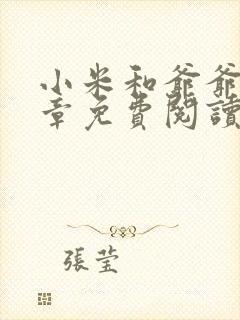 小米和爺爺
章免費閱讀
張莹